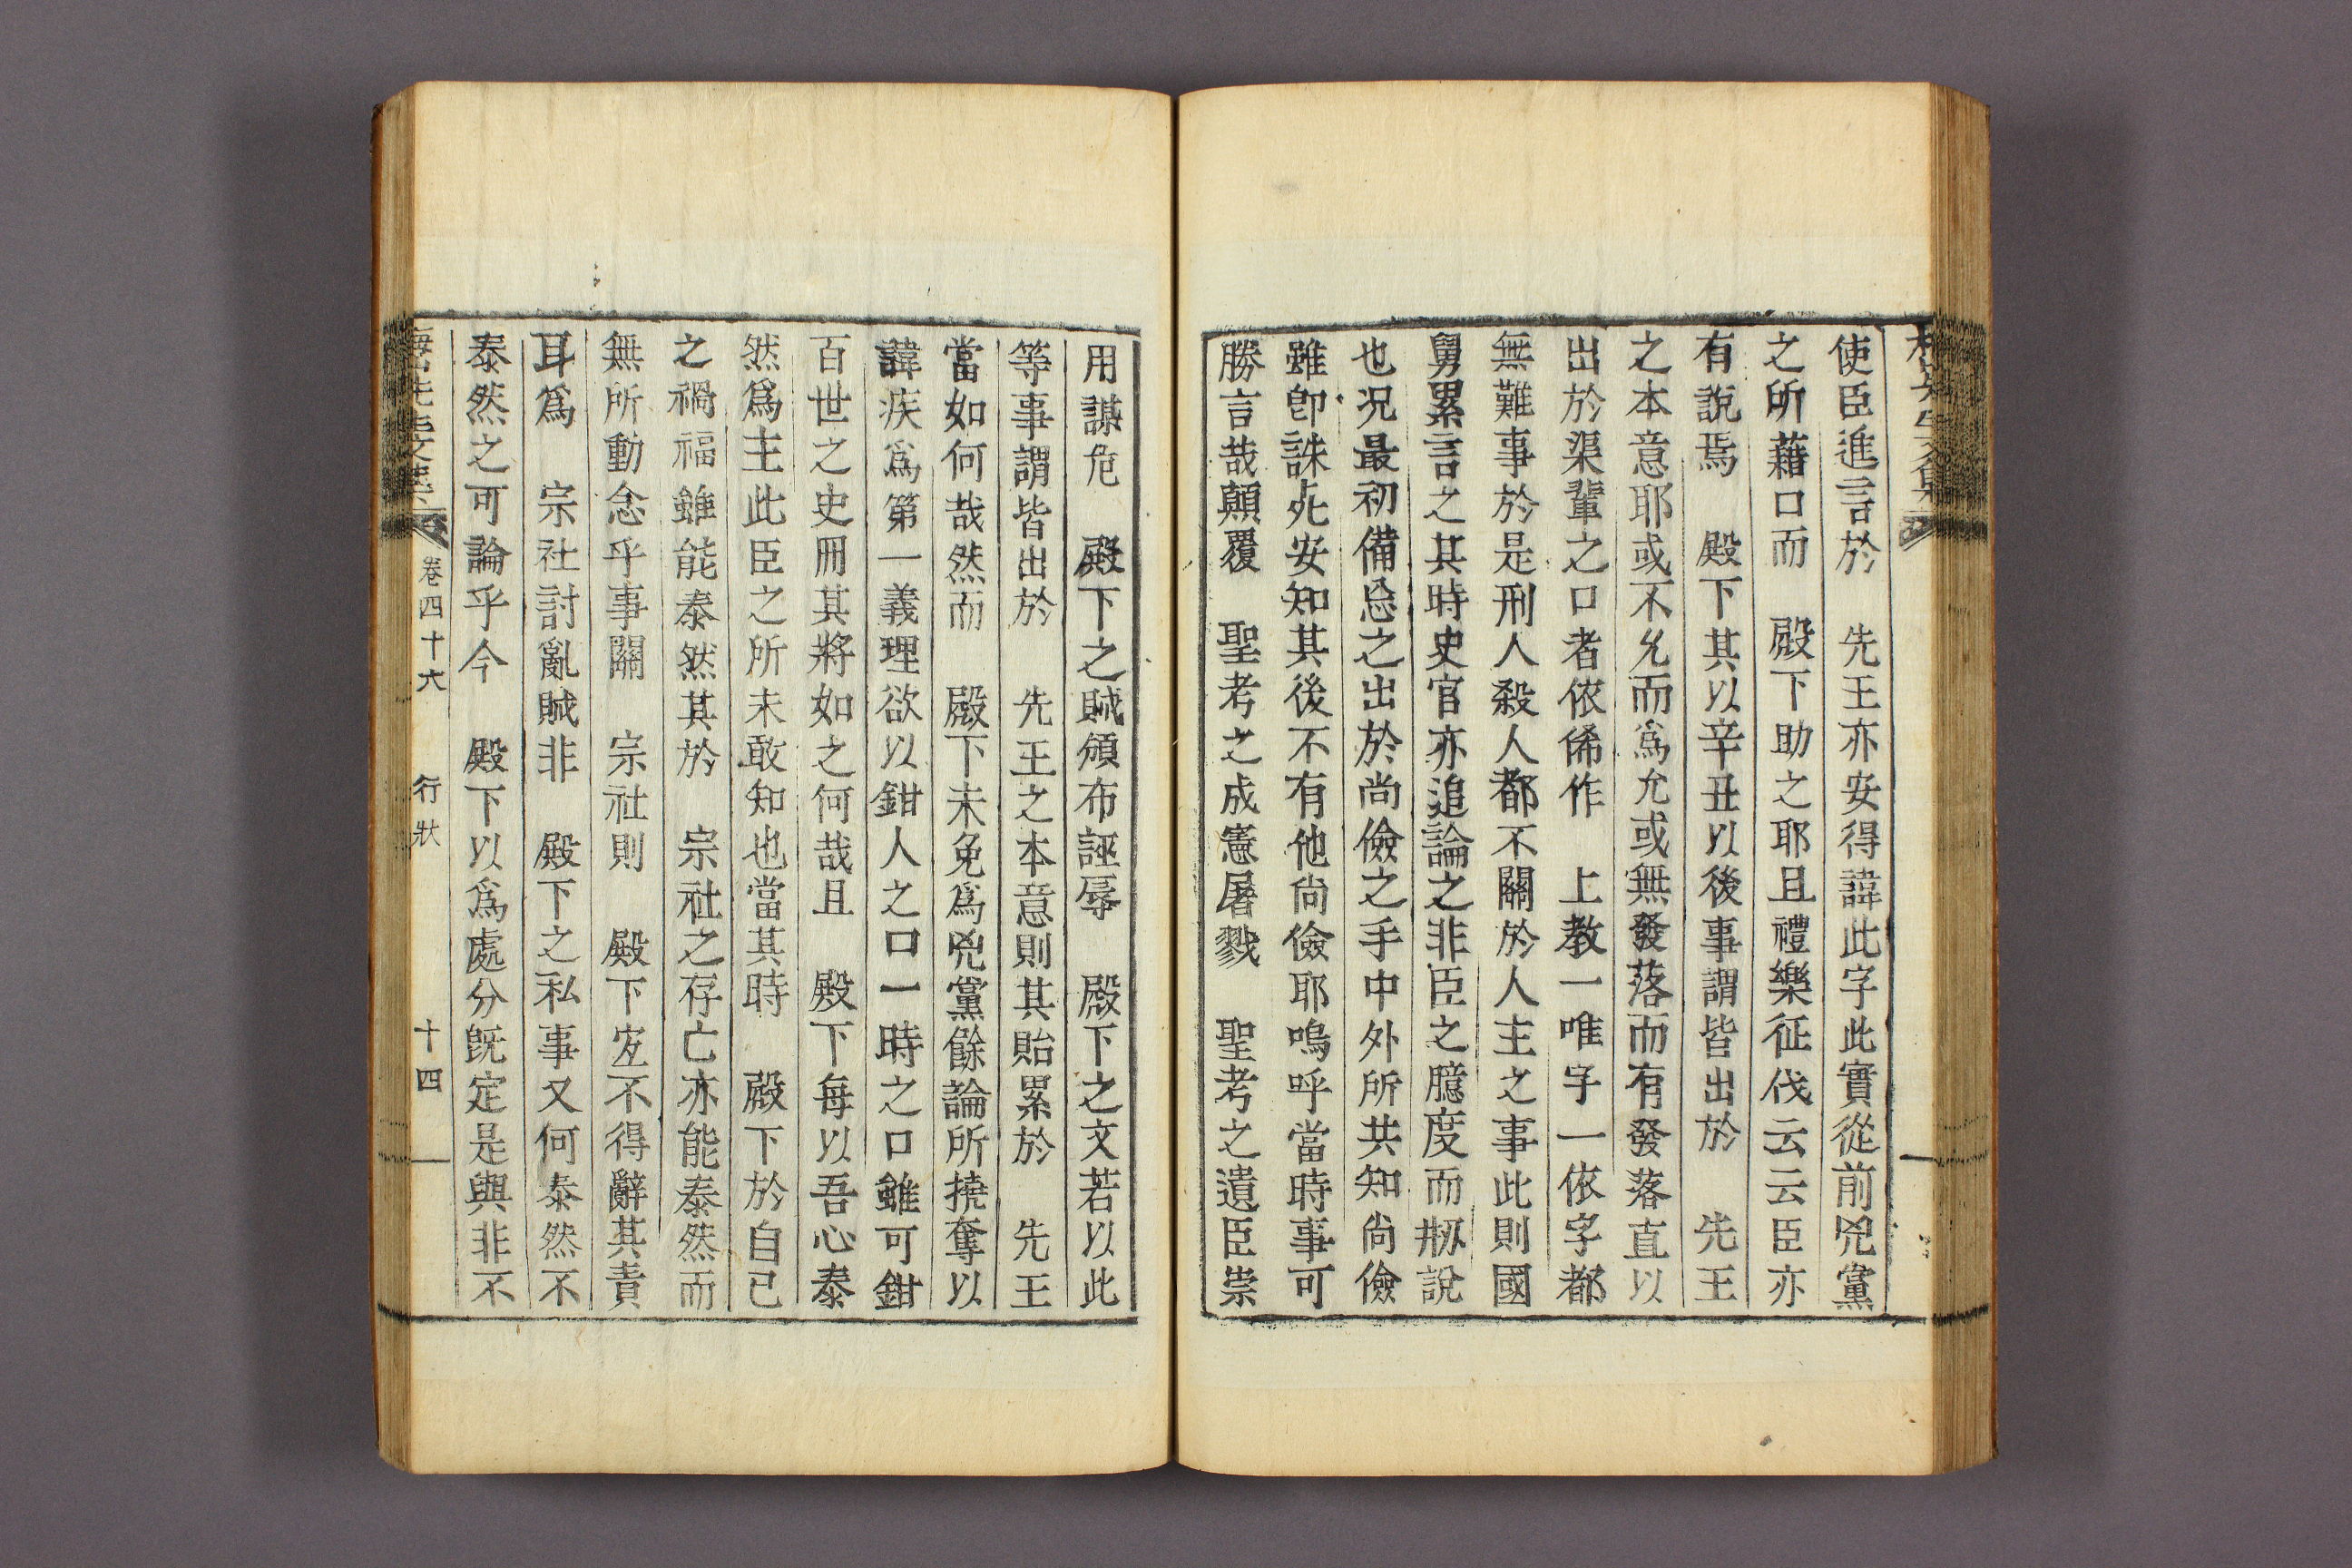 使臣進言於　先王亦安得諱此字此實從前兇黨
之所藉口而　殿下助之耶且禮樂征伐云云臣亦
有說焉　殿下其以辛丑以後事謂皆出於　先王
之本意耶或不允而爲允或無發落而有發落直以
出於渠輩之口者依俙作　上教一唯字一依字都
無難事於是刑人殺人都不關於人主之事此則國
舅累言之其時史官亦追論之非臣之臆度而刱說
也况最初備忘之出於尚儉之手中外所共知尚儉
雖卽誅死安知其後不有他尙儉耶嗚呼當時事可
勝言哉顚覆　聖考之成憲屠戮　聖考之遺臣崇
用謀危　殿下之賊頒布誣辱　殿下之文若以此
等事謂皆出於　先王之本意則其貽累於　先王
當如何哉然而　殿下未免爲兇黨餘論所撓奪以
諱疾爲第一義理欲以鉗人之口一時之口雖可鉗
百世之史冊其將如之何哉且　殿下每以吾心泰
然爲主此臣之所未敢知也當其時　殿下於自己
之禍福雖能泰然其於　宗社之存亡亦能泰然而
無所動念乎事關　宗社則　殿下宐不得辭其責
耳爲　宗社討亂賊非　殿下之私事又何泰然不
泰然之可論乎今　殿下以爲處分旣定是與非不
卷四十六　行狀　十四